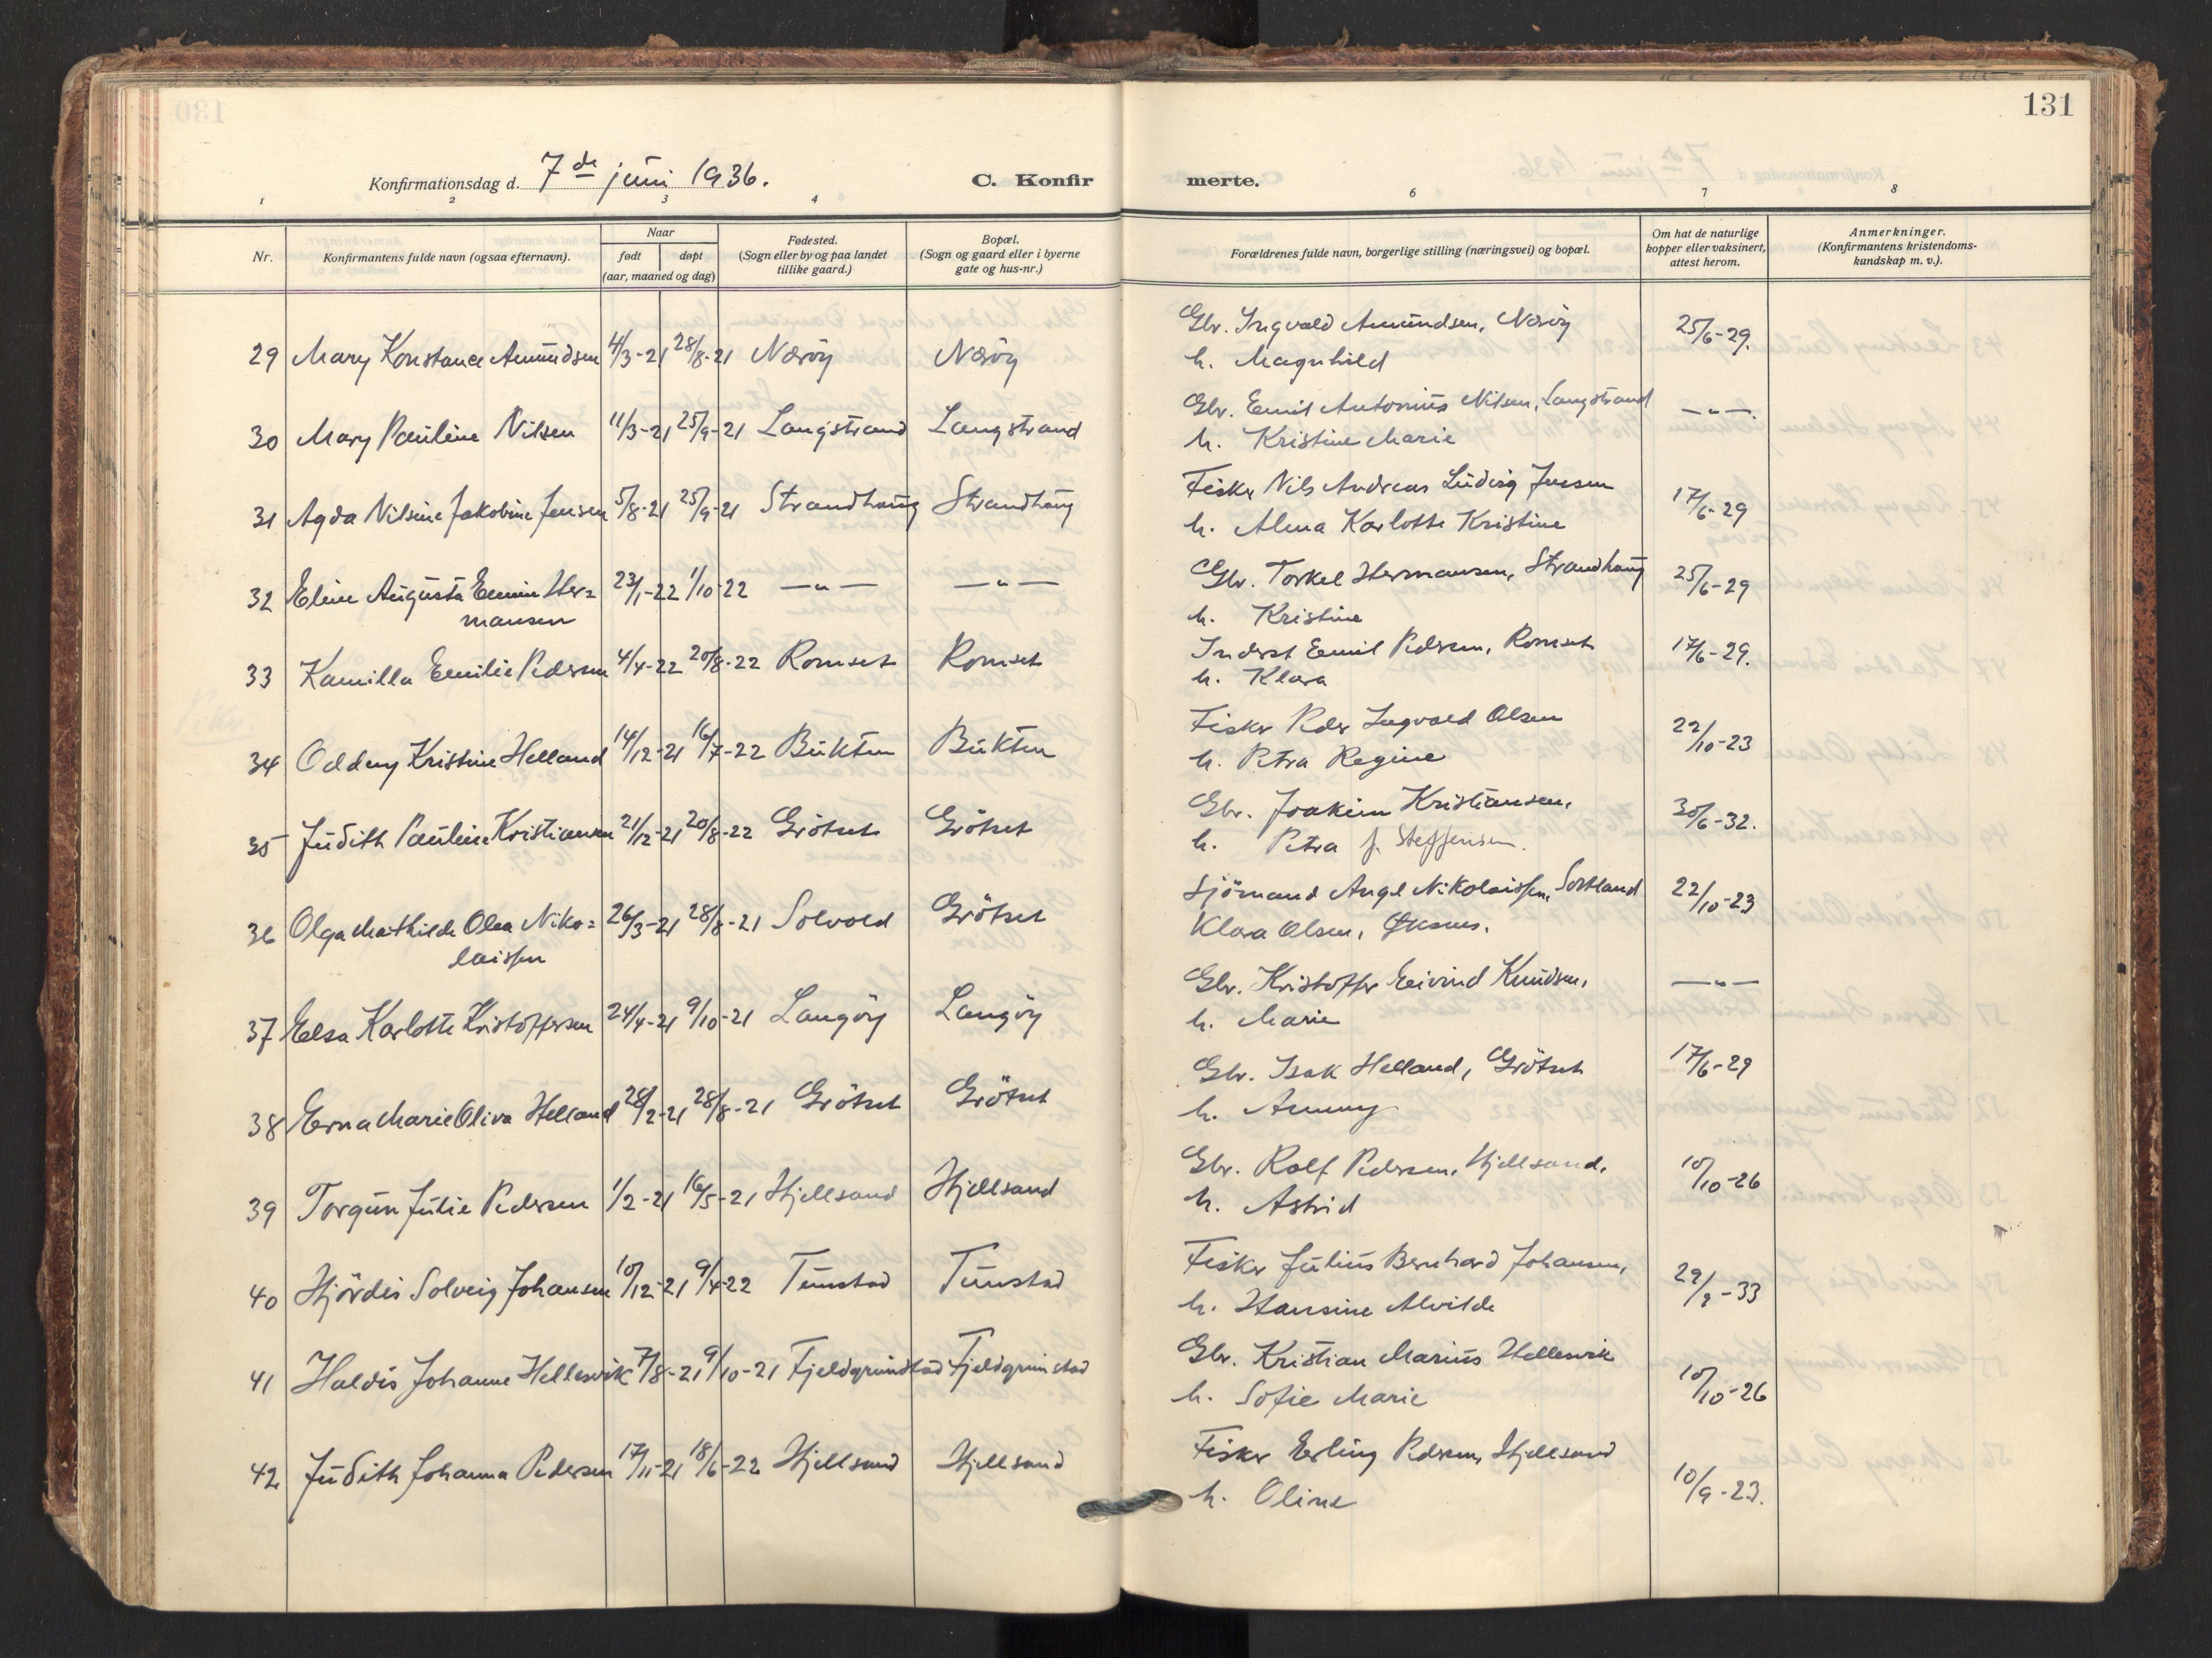 131
Konfirmationsdag d. 7de juni 1936.
C. Konfirmerte.
1 2 3 4 6 7 8
Nr. Konfirmantens fulde navn (ogsaa efternavn). Naar født døpt (aar, maaned og dag) Fødested. (Sogn eller by og paa landet tillike gaard.) Bopæl. (Sogn og gaard eller i byerne gate og hus-nr.) Forældrenes fulde navn, borgerlige stilling (næringsvei) og bopæl. Om hat de naturlige kopper eller vaksinert, attest herom. Anmerkninger. (Konfirmantens kristendoms-kundskap m. v.).
29 Mary Konstance Amundsen 4/3-21 28/8-21 Nærøy Nærøy Gbr. Ingvald Amundsen, Nærøy 25/6-29.
h. Magnhild
30 Mary Pauline Nilsen 11/3-21 25/9-21 Langstrand Langstrand Gbr. Emil Antonius Nilsen, Langstrand —„—.
h. Kristine Marie
31 Agda Nilsine Jakobine Jensen 5/8-21 25/9-21 Strandhaug Strandhaug Fisker Nils Andreas Ludvig Jensen 17/6-29
h. Alma Karlotte Kristine
32 Eline Augusta Hermansen 23/1-22 1/10-22 —„— —„— Gbr. Torkel Hermansen, Strandhaug 25/6-29
h. Kristine
33 Kamilla Emilie Pedersen 4/4-22 20/8-22 Romset Romset Inderst Emil Pedersen, Romset 17/6-29.
h. Klara
34 Oddny Kristine Helland 14/12-21 16/7-22 Bukten Bukten Fisker Peder Ingvald Olsen 22/10-23
h. Petra Regine
35 Judith Pauline Kristiansen 21/12-21 20/8-22 Grötset Grötset Gbr. Joakim Kristiansen, 30/6-32.
h. Petra f. Steffensen.
36 Olga Mathilde Olea Niko= 26/3-21 28/8-21 Solvold Grötset Sjömand Angel Nikolaissen, Sortland 22/10-23
laissen Klara Olsen, Øksnes.
37 Elsa Karlotte Kristoffersen 24/4-21 9/10-21 Langöy Langöy Gbr. Kristoffer Eivind Knudsen, —„—
h. Marie
38 Erna Marie Oliva Helland 28/2-21 28/8-21 Grötset Grötset Gbr. Isak Helland, Grötset 17/6-29
h. Ammy
39 Torgun Julie Pedersen 1/2-21 16/5-21 Hjellsand Hjellsand Gbr. Rolf Pedersen, Hjellsand. 10/10-26
h. Astrid
40 Hjördis Solveig Johansen 10/12-21 9/4-22 Tunstad Tunstad Fisker Julius Bernhard Johansen, 29/9-33
h. Hansine Alvilde
41 Haldis Johanne Hellesvik 7/8-21 9/10-21 Fjeldgrunstad Fjeldgrunstad Gbr. Kristian Marius Hellesvik 10/10-26
h. Sofie Marie
42 Judith Johanna Pedersen 17/11-21 18/6-22 Hjellsand Hjellsand Fisker Erling Pedersen, Hjellsand 10/9-23.
h. Oline